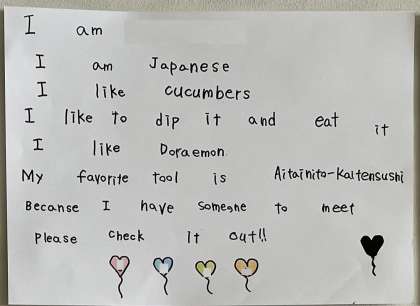 I am
I am Japanese
I like cucumbers
I like to dip it and eat it
I like Doraemon.
My favorite tool is Aitainito-Kaitensushi
Becanse I have someone to meet
Please check it out!!